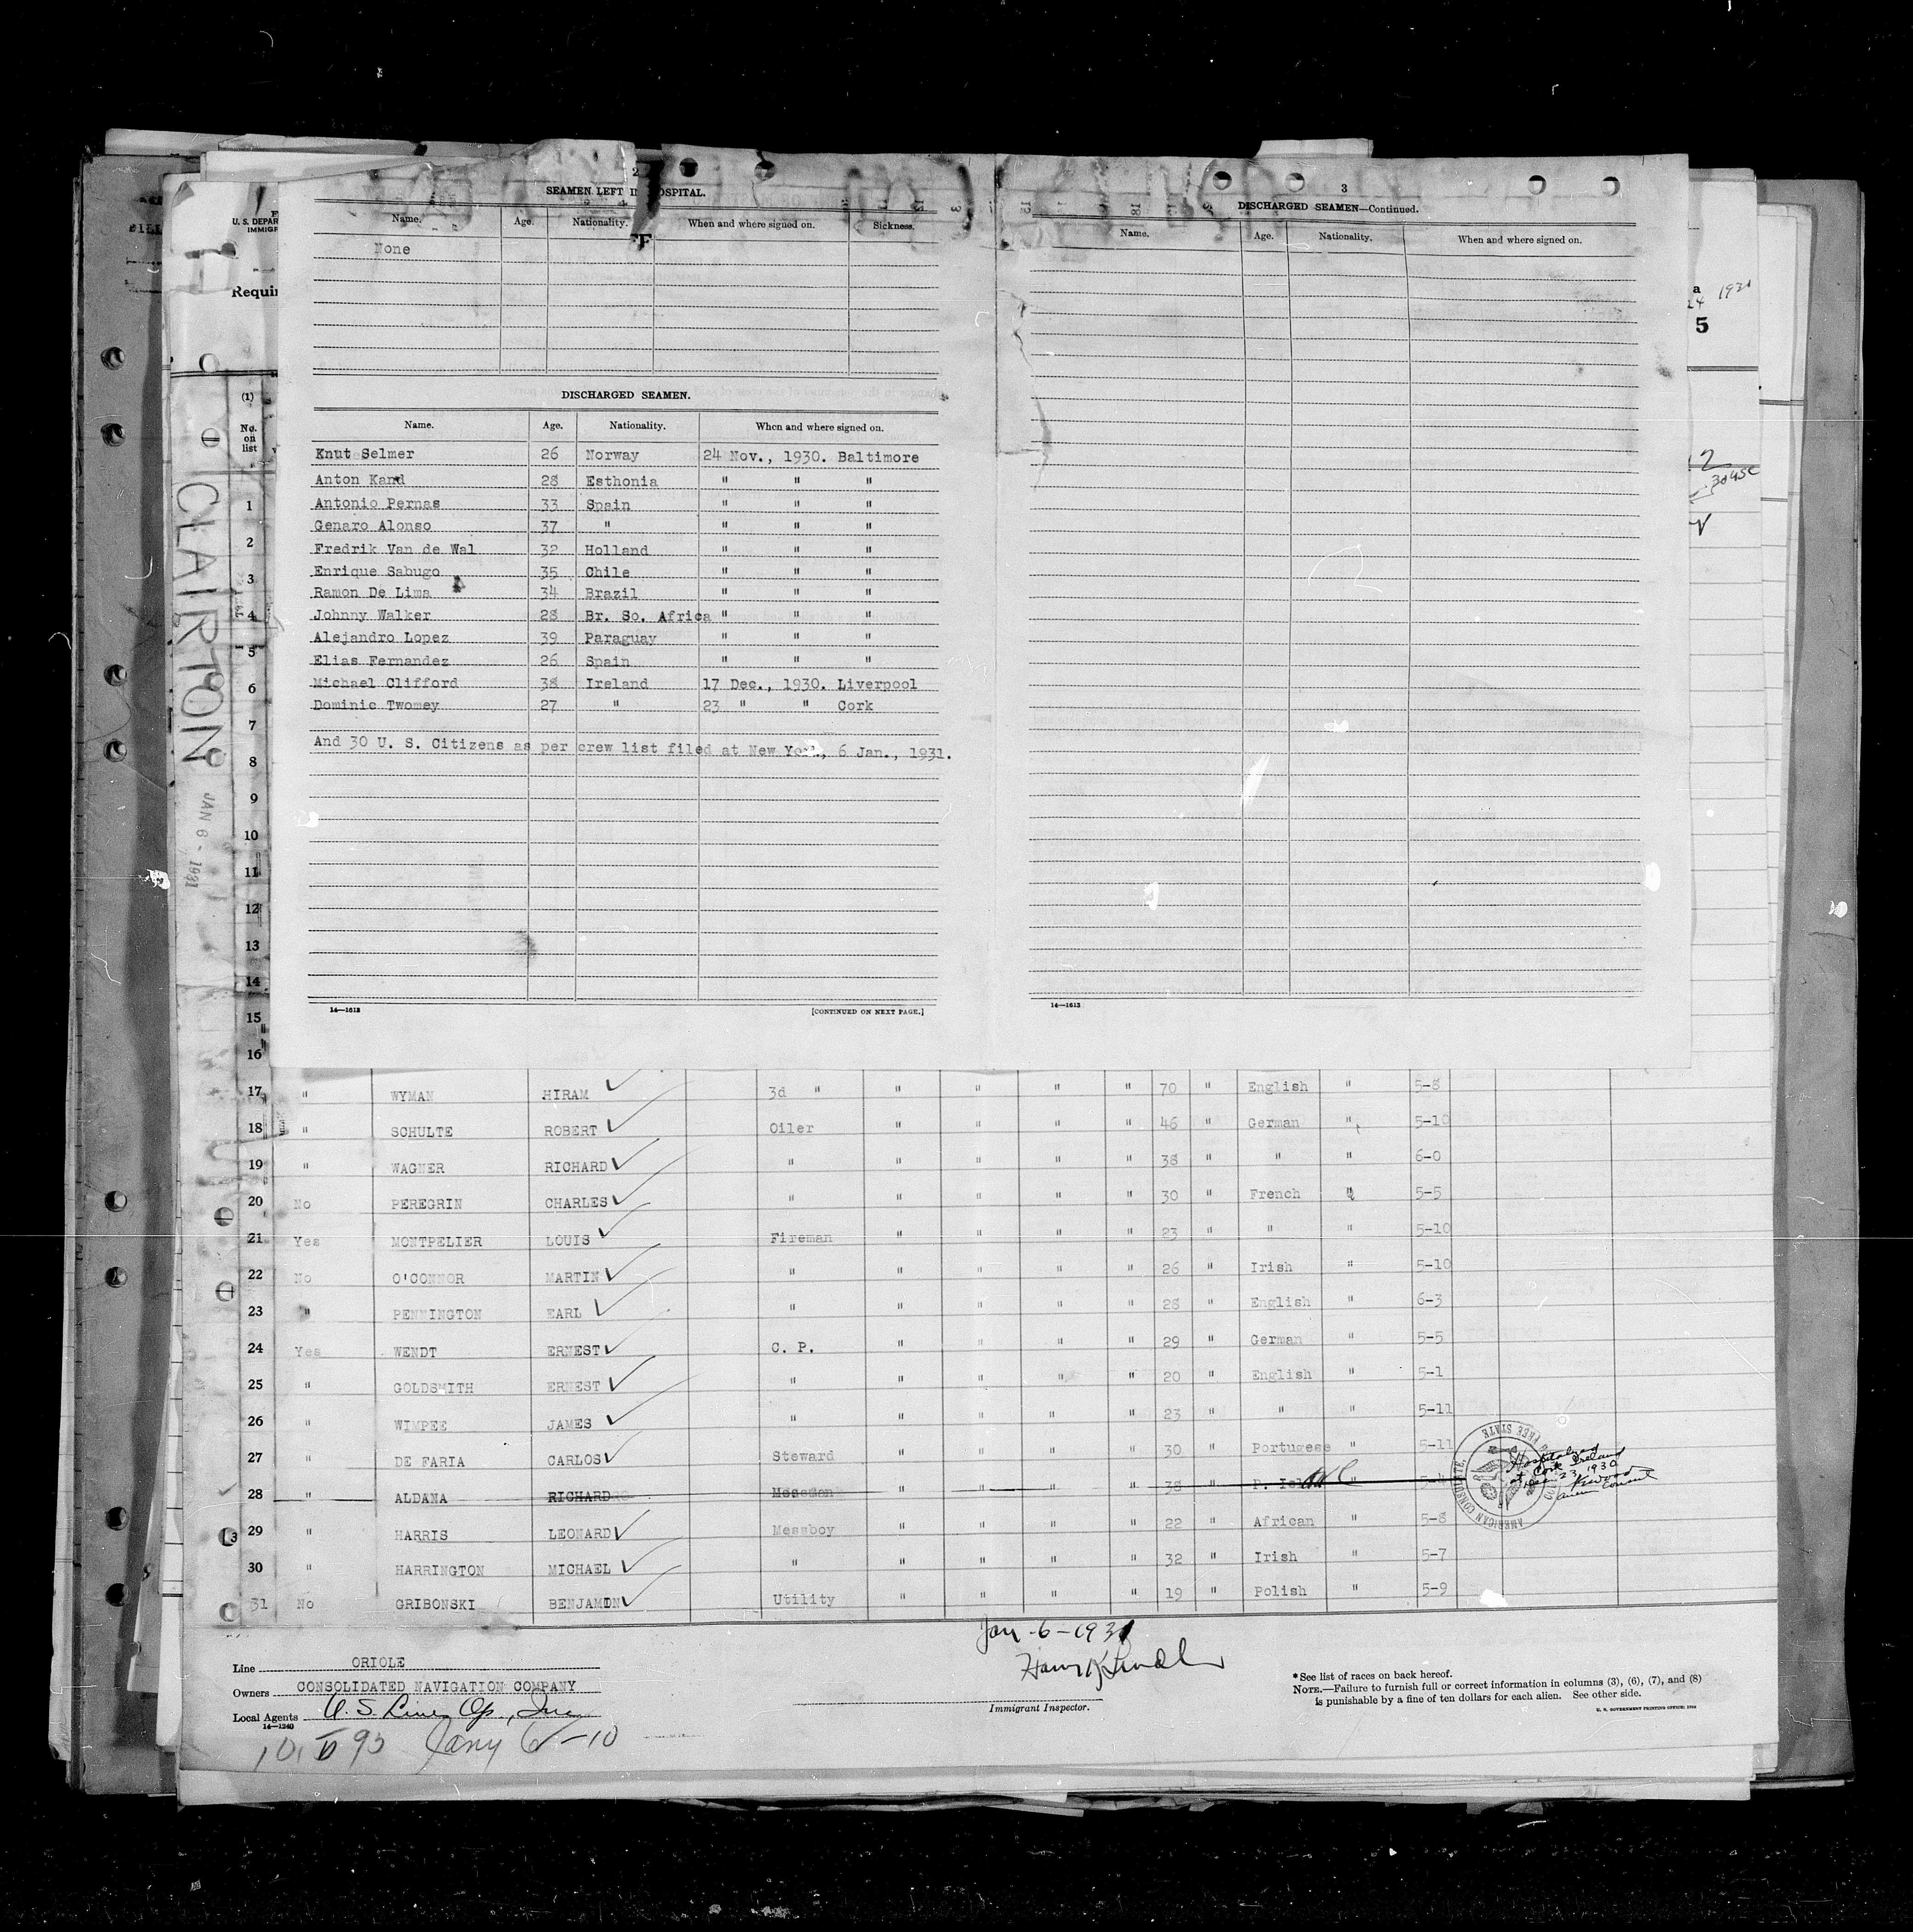 2
SEAMEN LEFT IN HOSPITAL.
Name. Age. Nationality. When and where signed on. Sickness.
None
DISCHARGED SEAMEN.
Name. Age. Nationality. When and where signed on.
Knut Selmer 26 Norway 24 Nov., 1930. Baltimore
Anton Kand 28 Esthonia " " "
Antonio Pernas 33 Spain " " "
Genaro Alonso 37 " " " "
Fredrik Van de Wal 32 Holland " " "
Enrique Sabugo 35 Chile " " "
Ramon De Lima 34 Brazil " " "
Johnny Walker 28 Br. So. Africa " " "
Alejandro Lopez 39 Paraguay " " "
Elias Fernandez 26 Spain " " "
Michael Clifford 38 Ireland 17 Dec., 1930. Liverpool
Dominic Twomey 27 " 23 " " Cork
And 30 U. S. Citizens as per crew list filed at New York, 6 Jan., 1931.
14—1613 [CONTINUED ON NEXT PAGE.]
3
DISCHARGED SEAMEN—Continued.
Name. Age. Nationality. When and where signed on.
14—1613
U. S. DEPAR
IMMIGR
Requir
a
24 1931
5
(1)
No. on list
CLAIRTON
JAN 6 - 1931
1
2
3
4
5
6
7
8
9
10
11
12
13
14
15
16
17 " WYMAN HIRAM 3d " " " " " 70 " English " 5-8
18 " SCHULTE ROBERT Oiler " " " " 46 " German " 5-10
19 " WAGNER RICHARD " " " " " 38 " " " 6-0
20 No PEREGRIN CHARLES " " " " " 30 " French " 5-5
21 Yes MONTPELIER LOUIS Fireman " " " " 23 " " " 5-10
22 No O'CONNOR MARTIN " " " " " 26 " Irish " 5-10
23 " PENNINGTON EARL " " " " " 28 " English " 6-3
24 Yes WENDT ERNEST C. P. " " " " 29 " German " 5-5
25 " GOLDSMITH ERNEST " " " " " 20 " English " 5-1
26 " WIMPEE JAMES " " " " " 23 " " " 5-11
27 " DE FARIA CARLOS Steward " " " " 30 " Portugese " 5-11
28 " ALDANA RICHARD Messman " " " " 38 " P. Isl " 5-4
AMERICAN CONSULATE, FREE STATE
Hospitalized
at Cork Ireland
Dec. 23, 1930
Amer Consul
29 " HARRIS LEONARD Messboy " " " " 22 " African " 5-8
30 " HARRINGTON MICHAEL " " " " " 32 " Irish " 5-7
31 No GRIBONSKI BENJAMIN Utility " " " " 19 " Polish " 5-9
Jan -6-1931
Line ORIOLE
Owners CONSOLIDATED NAVIGATION COMPANY
Local Agents U. S. Lines Op., Inc
14—1240
Immigrant Inspector.
* See list of races on back hereof.
NOTE.—Failure to furnish full or correct information in columns (3), (6), (7), and (8)
is punishable by a fine of ten dollars for each alien. See other side.
U. S. GOVERNMENT PRINTING OFFICE: 1930
Jany 6-10